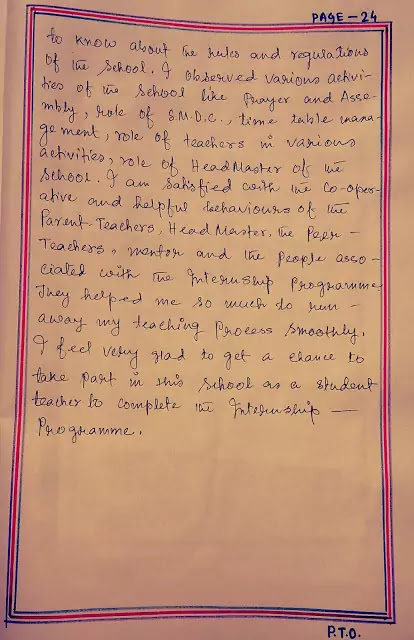 PAGE - 24
to know about the rules and regulations
of the School. I observed various activi-
ties of the School like Prayer and Asse-
mbly, role of S.M.D.C., time table mana-
gement, role of teachers in various
activities, role of HeadMaster of the
School. I am satisfied with the Co-oper-
ative and helpful behaviours of the
Parent-Teachers, HeadMaster, the Peer -
Teachers, mentor and the People asso-
ciated with the Internship Programme.
They helped me so much to run -
away my teaching Process smoothly.
I feel very glad to get a chance to
take part in this School as a student
teacher to complete the Internship —
Programme.
P.T.O.